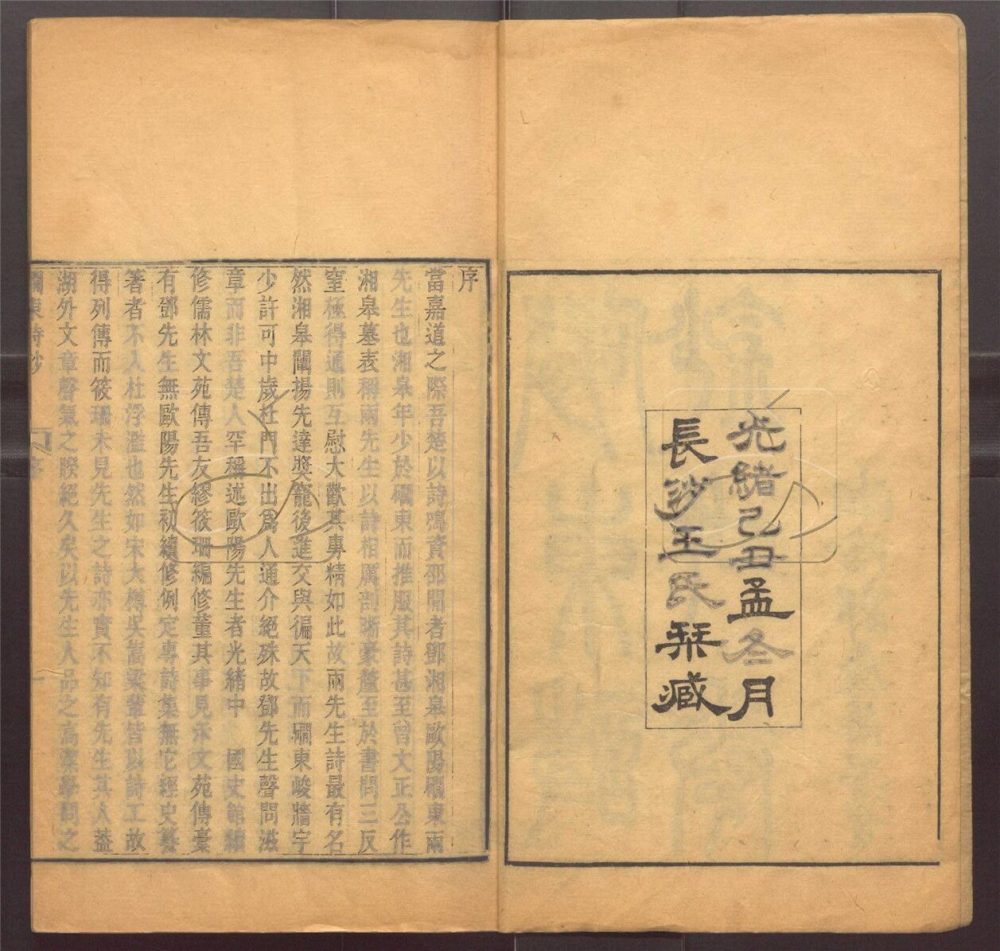 光緒己丑孟冬月
長沙王氏栞藏
序
當嘉道之際吾楚以詩鳴資邵間者鄧湘皋歐陽磵東兩
先生也湘皋年少於磵東而推服其詩甚至曾文正公作
湘皋墓表稱兩先生以詩相厲剖晰豪釐至於書問三反
窒極得通則互慰大歡其專精如此故兩先生詩最有名
然湘皋闡揚先達獎寵後進交與徧天下而磵東峻牆宇
少許可中歲杜門不出爲人通介絕殊故鄧先生聲問滋
章而非吾楚人罕稱述歐陽先生者光緒中 國史館續
修儒林文苑傳吾友繆筱珊編修董其事見示文苑傳稾
有鄧先生無歐陽先生初續修例定專詩集無它經史纂
著者不入杜浮濫也然如宋大樽吳嵩梁輩皆以詩工故
得列傳而筱珊未見先生之詩亦實不知有先生其人蓋
湖外文章聲氣之睽絕久矣以先生人品之高潔學問之
磵東詩鈔 序 一